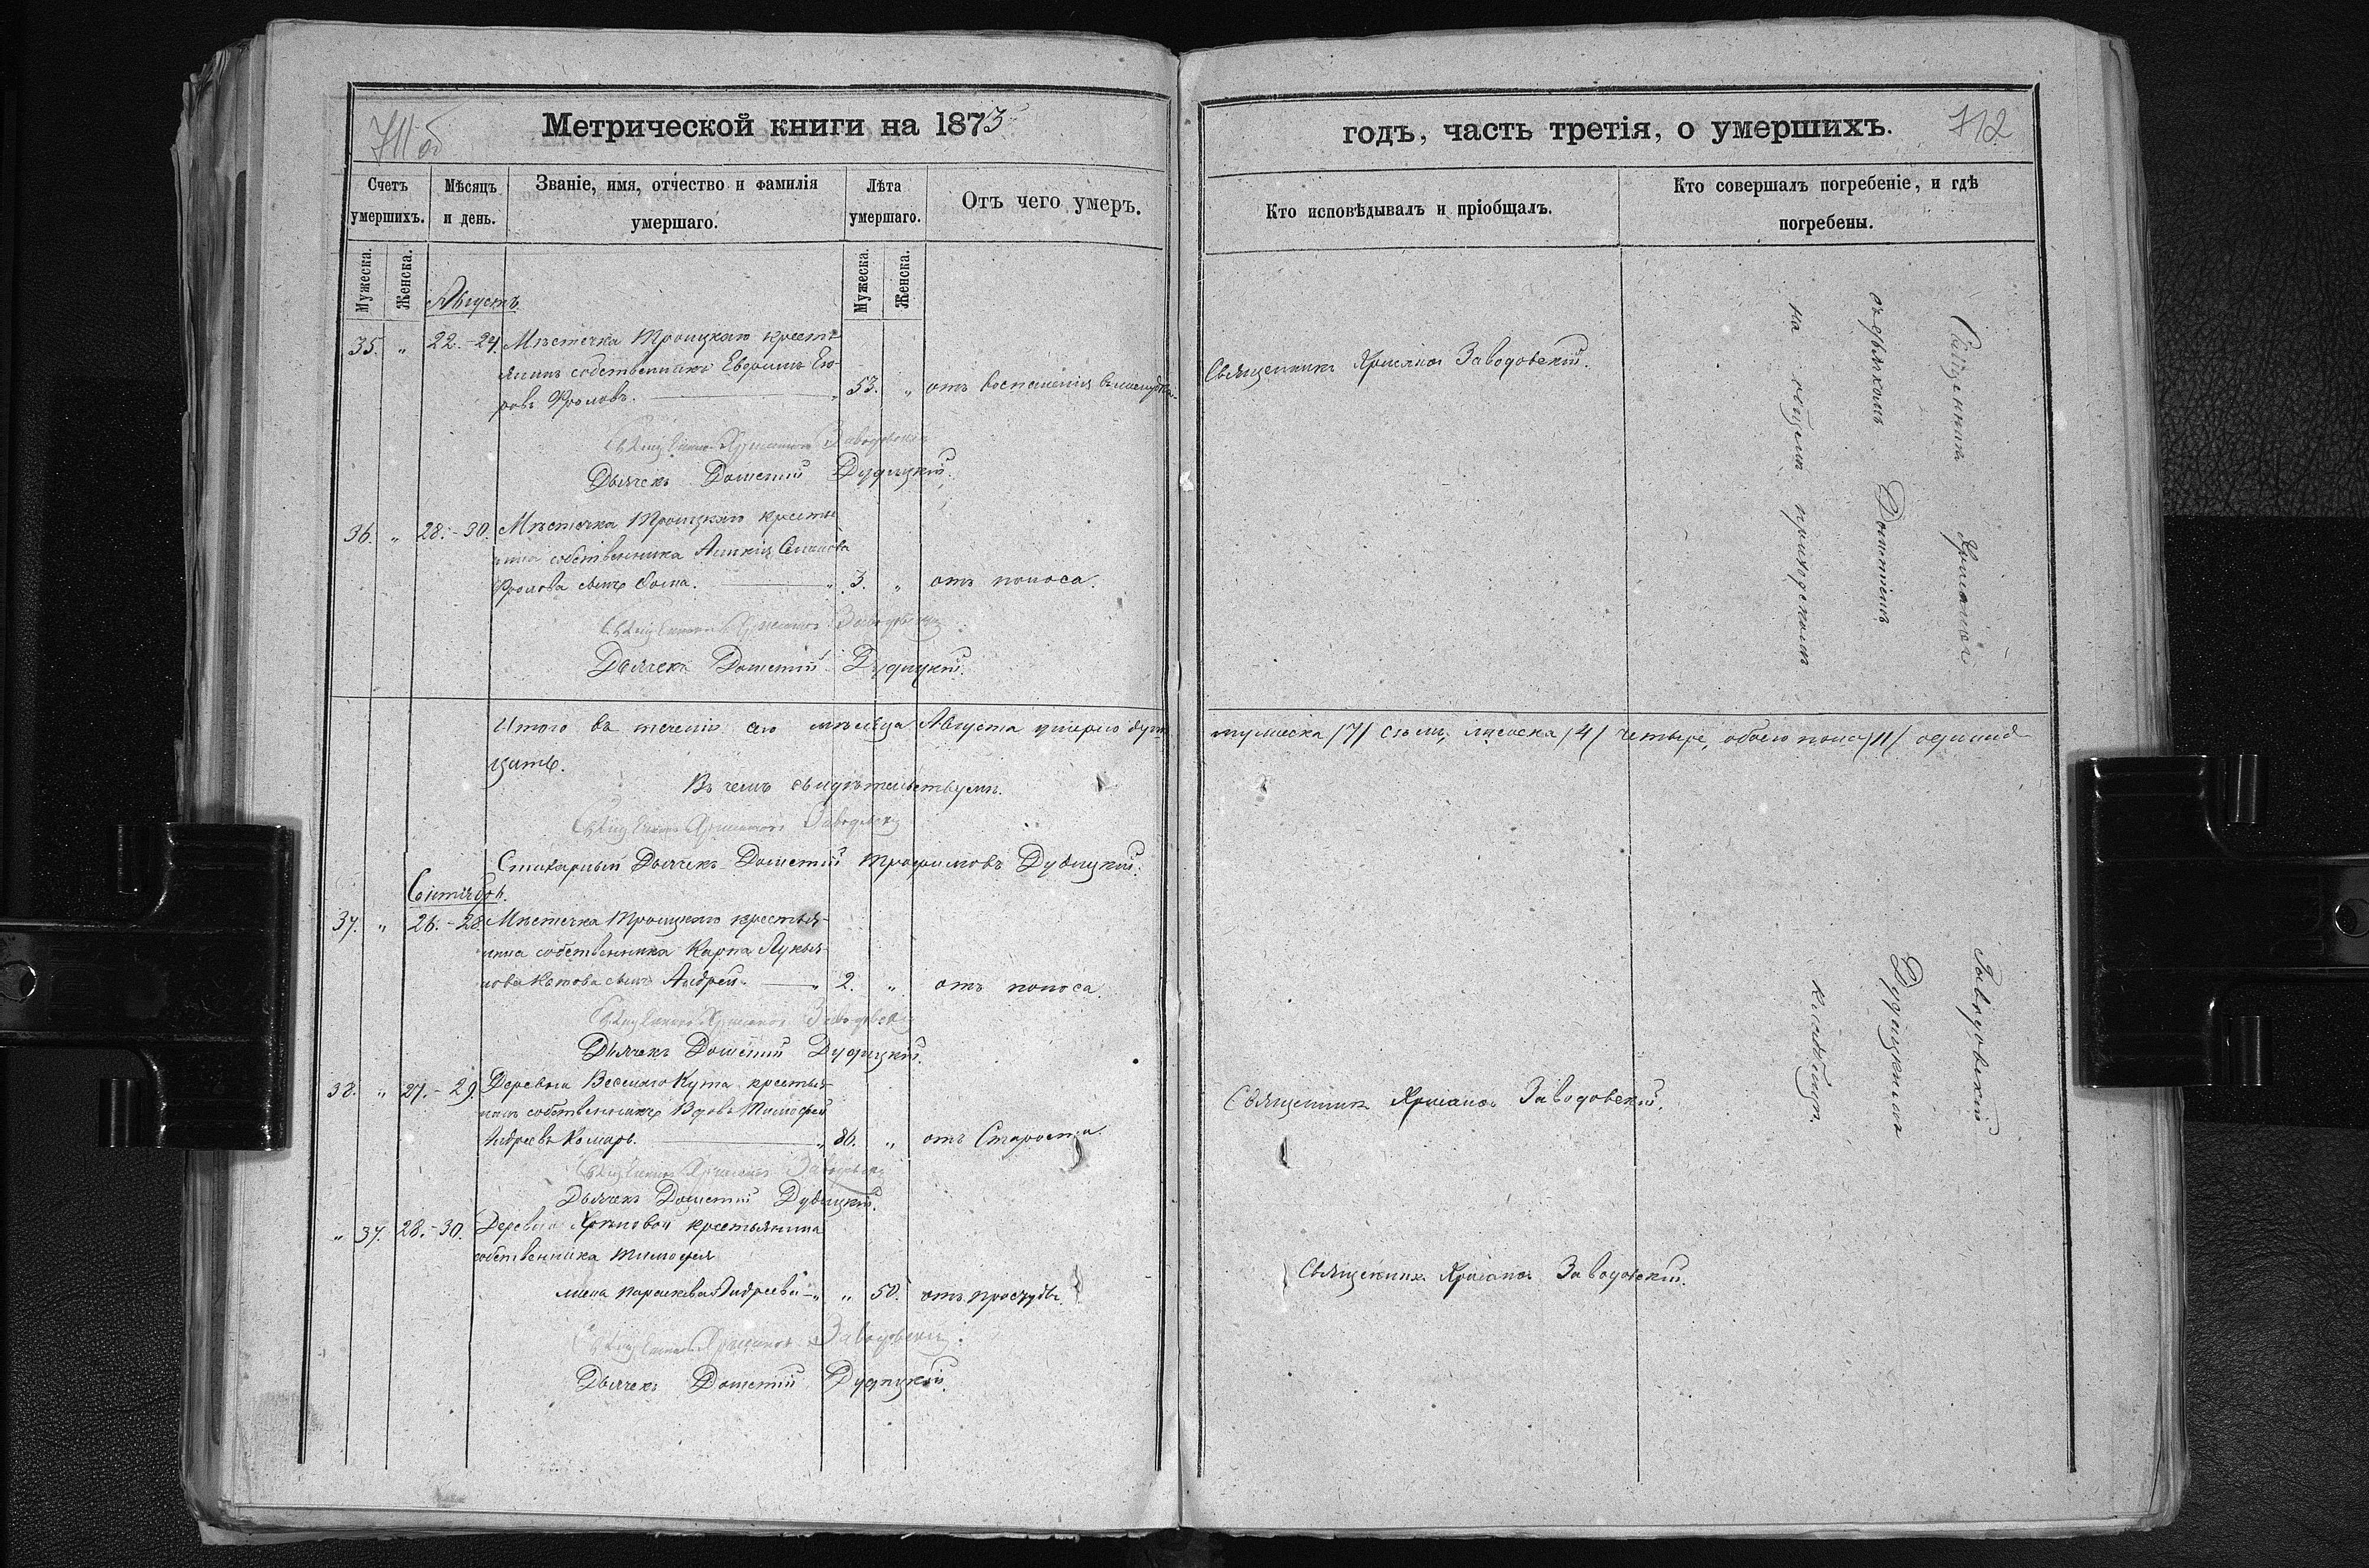 711 об
Метрической книги на 1873
Счетъ умершихъ.
Мѣсяцъ и день.
Званіе, имя, отчество и фамилія умершаго.
Лѣта умершаго.
Отъ чего умеръ.
Мужеска.
Женска.
Мужеска.
Женска.
Августъ.
35. „ 22.-24. Мѣстечка Троицкаго крестья
янинъ собственникъ Евдокимъ Его
ровъ Фроловъ. 53. „ отъ воспаленія
Священникъ Заводовскій
Дьячекъ Дометій Дудицкій.
36. „ 28.-30. Мѣстечка Троицкаго крестья
нина собственника
Фролова сынъ 3. „ отъ поноса.
Священникъ Заводовскій
Дьячекъ Дометій Дудицкій.
Итого въ теченіи сего мѣсяца Августа умерло душъ
цать.
Въ чемъ свидѣтельствуемъ.
Священникъ Заводовскій
Стихарный Дьячекъ Дометій Трофимовъ Дудицкій.
Сентябрь.
37. „ 26.-28. Мѣстечка Троицкаго крестья-
нина собственника Карпа Лукья-
нова Котова сынъ Андрей. „ 2. „ отъ поноса.
Священникъ Заводовскій
Дьячекъ Дометій Дудицкій.
38. „ 27.-29. Деревни Веселаго Кута крестья-
нинъ собственникъ Вдовъ Тимофей
Андреевъ Комаръ. „ 86. „ отъ Старости.
Священникъ Заводовскій
Дьячекъ Дометій Дудицкій.
„ 37. 28.-30. Деревни крестьянина
собственника Тимофея
жена Параскева Андреева „ „ 50. отъ простуды.
Священникъ Заводовскій.
Дьячекъ Дометій Дудицкій.
годъ, часть третія, о умершихъ.
712
Кто исповѣдывалъ и пріобщалъ.
Кто совершалъ погребеніе, и гдѣ погребены.
Священникъ Заводовскій.
мужеска /7/ семь, женска /4/ четыре, обоего пола /11/ одинад-
Священникъ Заводовскій.
Священникъ Заводовскій.
Священникъ Заводовскій
съ дьячкомъ Дометіемъ Дудицкимъ
на общемъ приходскомъ кладбищѣ.